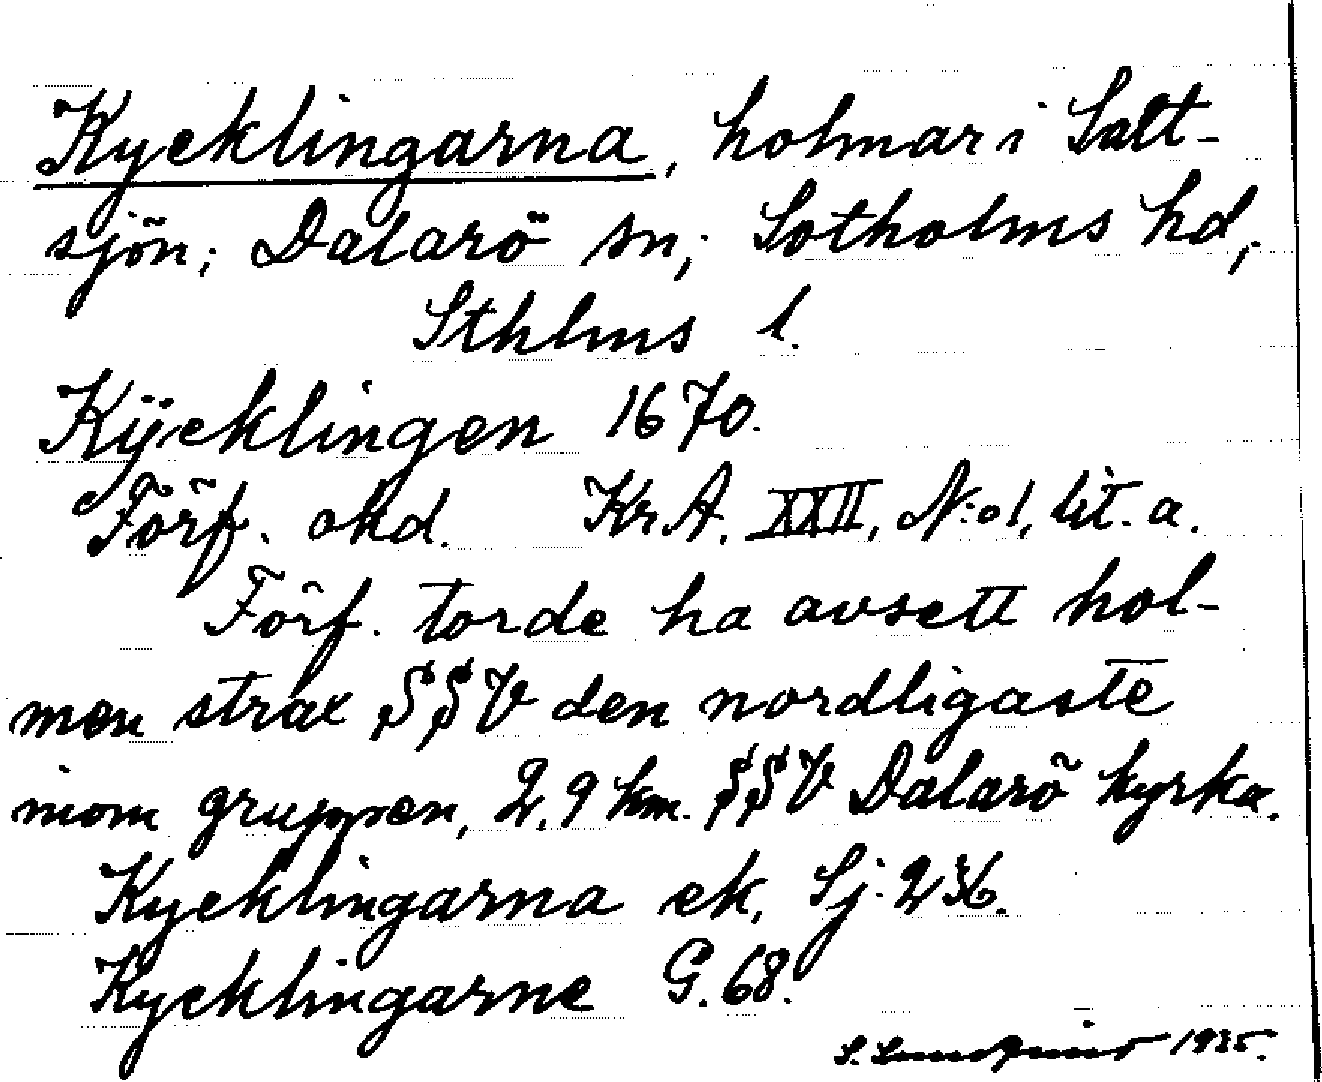 Kycklingarna, holmar i Salt-
sjön; Dalarö sn; Sotholms hd;
Sthlms l.
Kÿcklingen 1670.
Förf. okd. Kr.A. XXII, N:o 1, lit. a.
Förf. torde ha avsett hol-
men strax SSV den nordligaste
inom gruppen, 2,9 km. SSV Dalarö kyrka.
Kycklingarna ek, Sj: 236.
Kycklingarne G. 68.
1935.